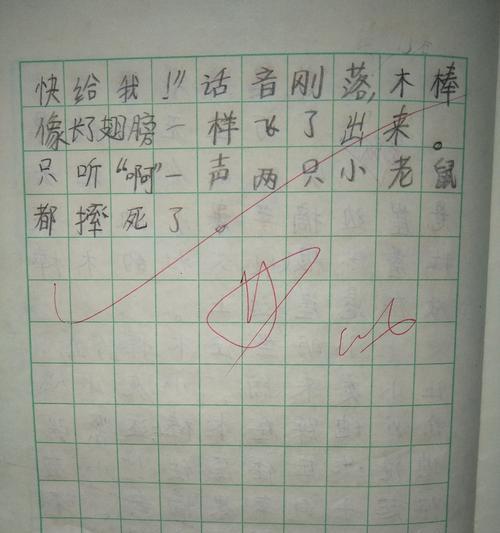 快给我!”话音刚落,木棒
像长了翅膀一样飞了出来。
只听“啊”一声两只小老鼠
都摔死了。